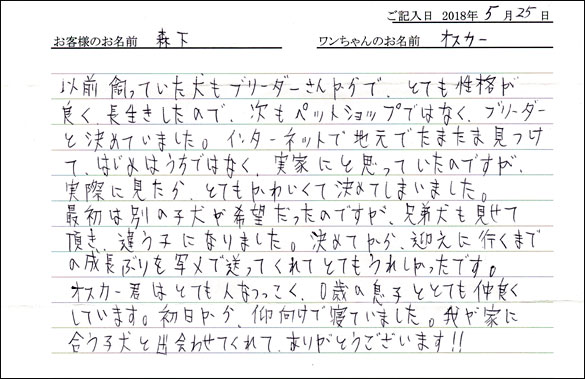 ご記入日 2018年 5月 25日
お客様のお名前 森下 ワンちゃんのお名前 オスカー
以前飼っていた犬もブリーダーさんからで、とても性格が
良く、長生きしたので、次もペットショップではなく、ブリーダー
と決めていました。インターネットで地元でたまたま見つけ
て、はじめはうちではなく、実家にと思っていたのですが、
実際に見たら、とてもかわいくて決めてしまいました。
最初は別の子犬が希望だったのですが、兄弟犬も見せて
頂き、違う子になりました。決めてから、迎えに行くまで
の成長ぶりを写メで送ってくれてとてもうれしかったです。
オスカー君はとても人なつっこく、0歳の息子ととても仲良く
しています。初日から、仰向けで寝ていました。我が家に
合う子犬と出会わせてくれて、ありがとうございます!!